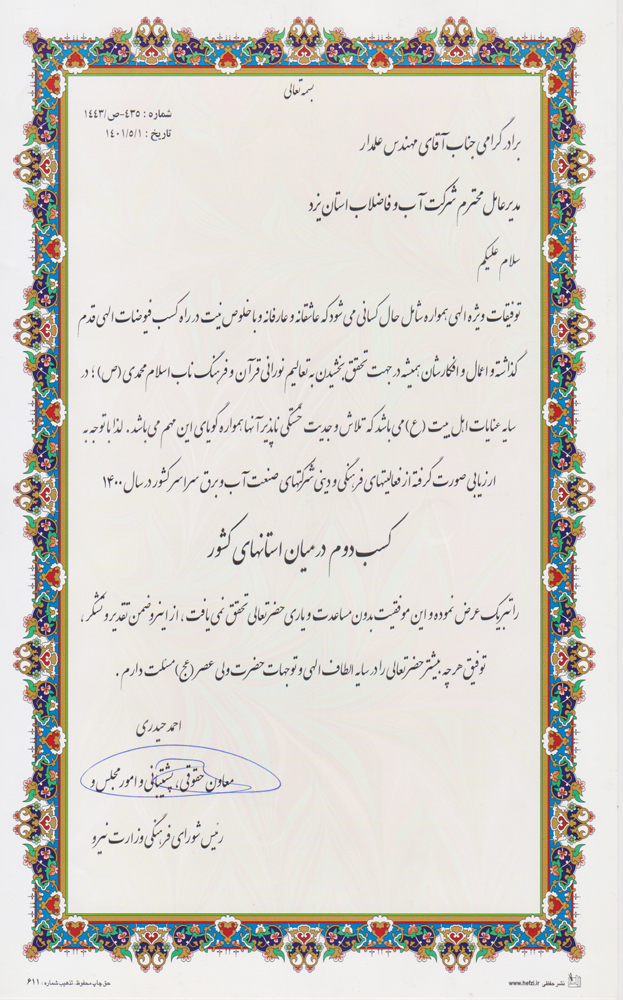 بسمه تعالی
شماره : ۴۳۵-ص/۱۴۴۳
تاریخ : ۱۴۰۱/۵/۱
برادر گرامی جناب آقای مهندس علمدار
مدیر عامل محترم شرکت آب و فاضلاب استان یزد
سلام علیکم
توفیقات ویژه الهی همواره شامل حال کسانی می شود که عاشقانه و عارفانه و با خلوص نیت در راه کسب فیوضات الهی قدم
گذاشته و اعمال و افکارشان همیشه در جهت تحقق بخشیدن به تعالیم نورانی قرآن و فرهنگ ناب اسلام محمدی (ص) ؛ در
سایه عنایات اهل بیت (ع) می باشد که تلاش و جدیت خستگی ناپذیر آنها همواره گویای این مهم می باشد . لذا با توجه به
ارزیابی صورت گرفته از فعالیتهای فرهنگی و دینی شرکتهای صنعت آب و برق سراسر کشور در سال ۱۴۰۰
کسب دوم درمیان استانهای کشور
را تبریک عرض نموده و این موفقیت بدون مساعدت و یاری حضرتعالی تحقق نمی یافت ، از اینرو ضمن تقدیر و تشکر ،
توفیق هر چه بیشتر حضرتعالی را در سایه الطاف الهی و توجهات حضرت ولی عصر (عج) مسئلت دارم .
احمد حیدری
معاون حقوقی، پشتیبانی و امور مجلس و
رئیس شورای فرهنگی وزارت نیرو
نشر حفظی www.hefzi.ir
حق چاپ محفوظ. تذهیب شماره : ۶۱۱